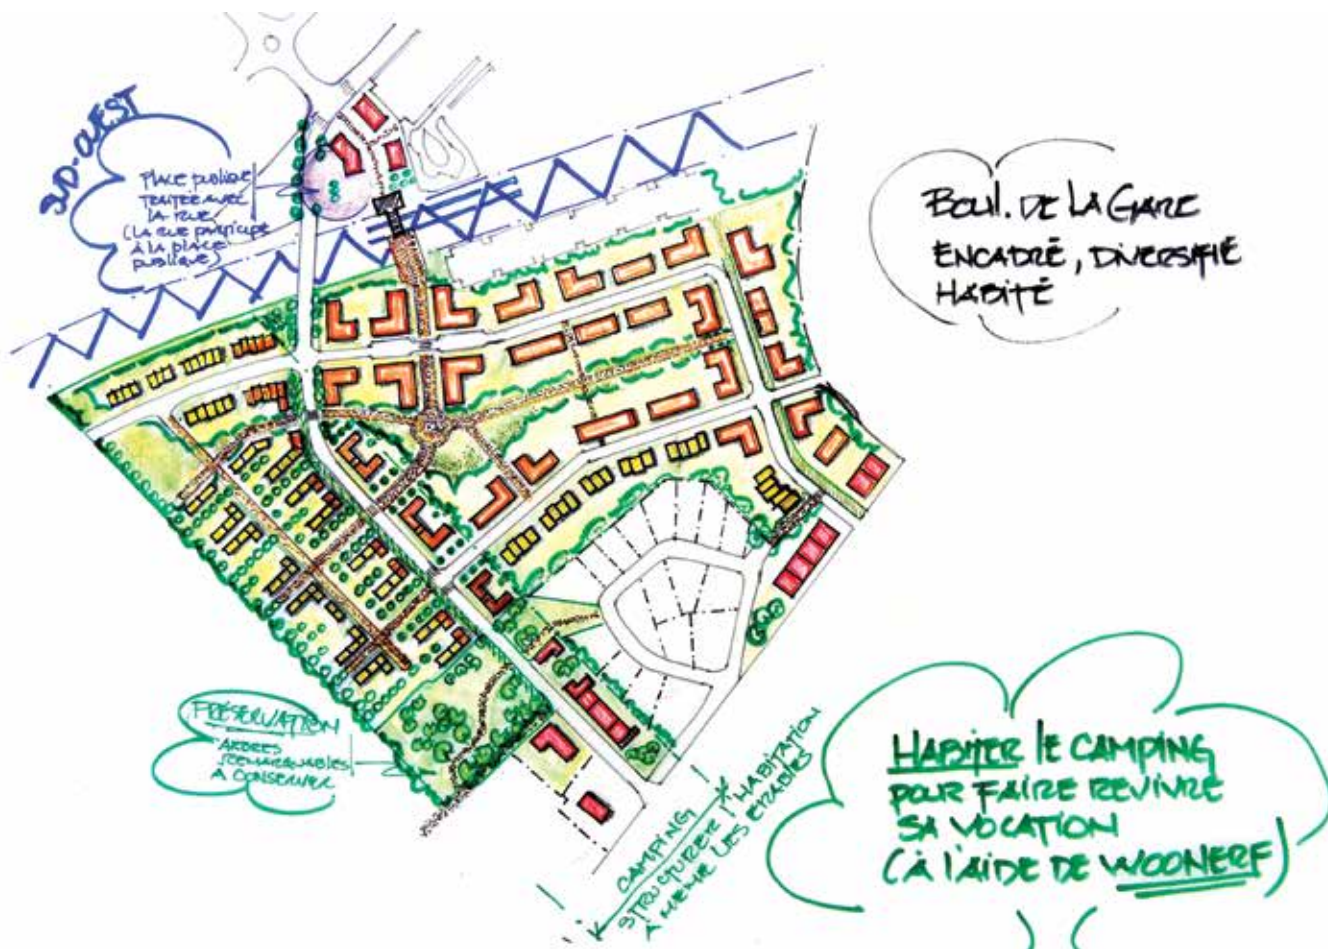 SUD-OUEST
PLACE PUBLIQUE
TRAITÉE AVEC
LA RUE
(LA RUE PARTICIPE
À LA PLACE
PUBLIQUE)
BOUL. DE LA GARE
ENCADRÉ, DIVERSIFIÉ
HABITÉ
PRÉSERVATION
ARBRES
REMARQUABLES
À CONSERVER
CAMPING
STRUCTURER L'HABITATION
À MÊME LES ÉRABLES
HABITER LE CAMPING
POUR FAIRE REVIVRE
SA VOCATION
(À L'AIDE DE WOONERF)